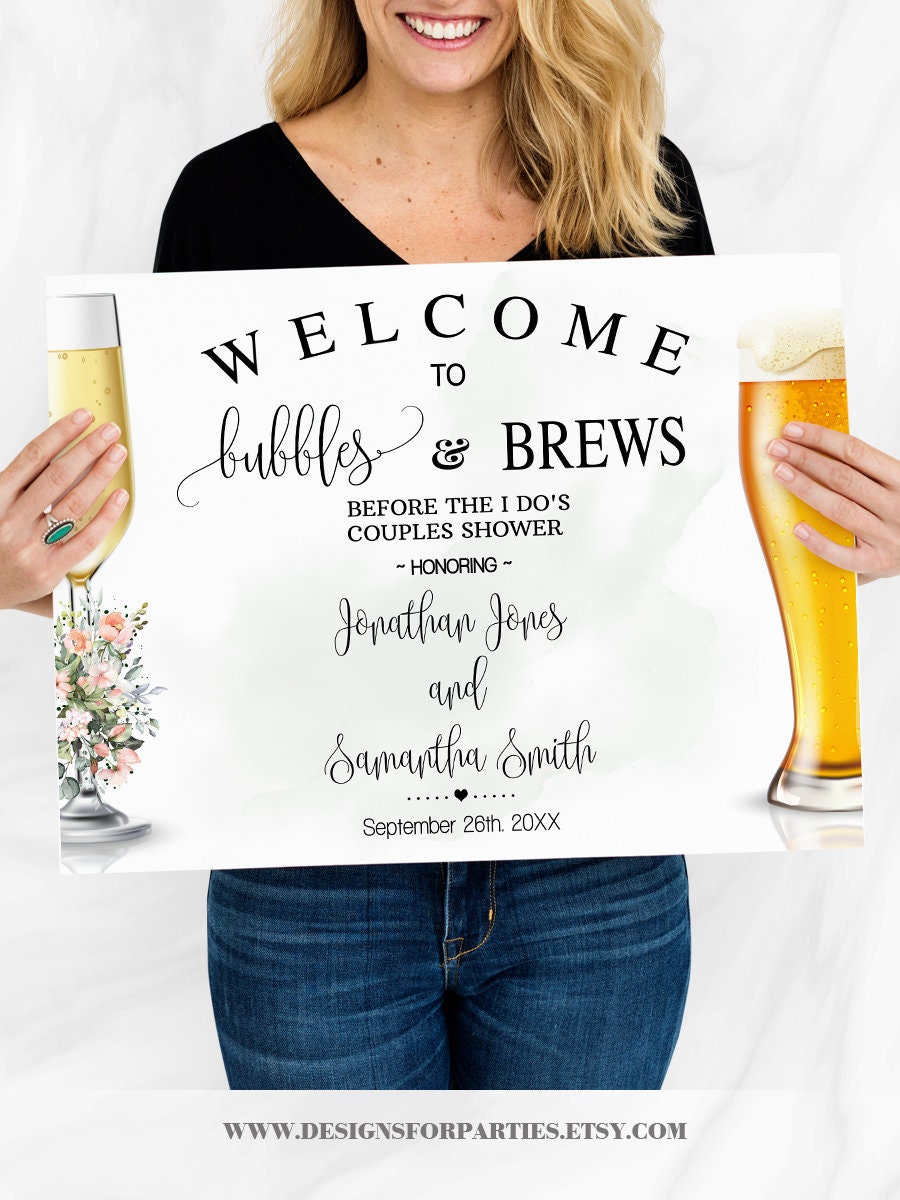 WELCOME
TO
bubbles & BREWS
BEFORE THE I DO'S
COUPLES SHOWER
~ HONORING ~
Jonathan Jones
and
Samantha Smith
September 26th. 20XX
WWW.DESIGNSFORPARTIES.ETSY.COM